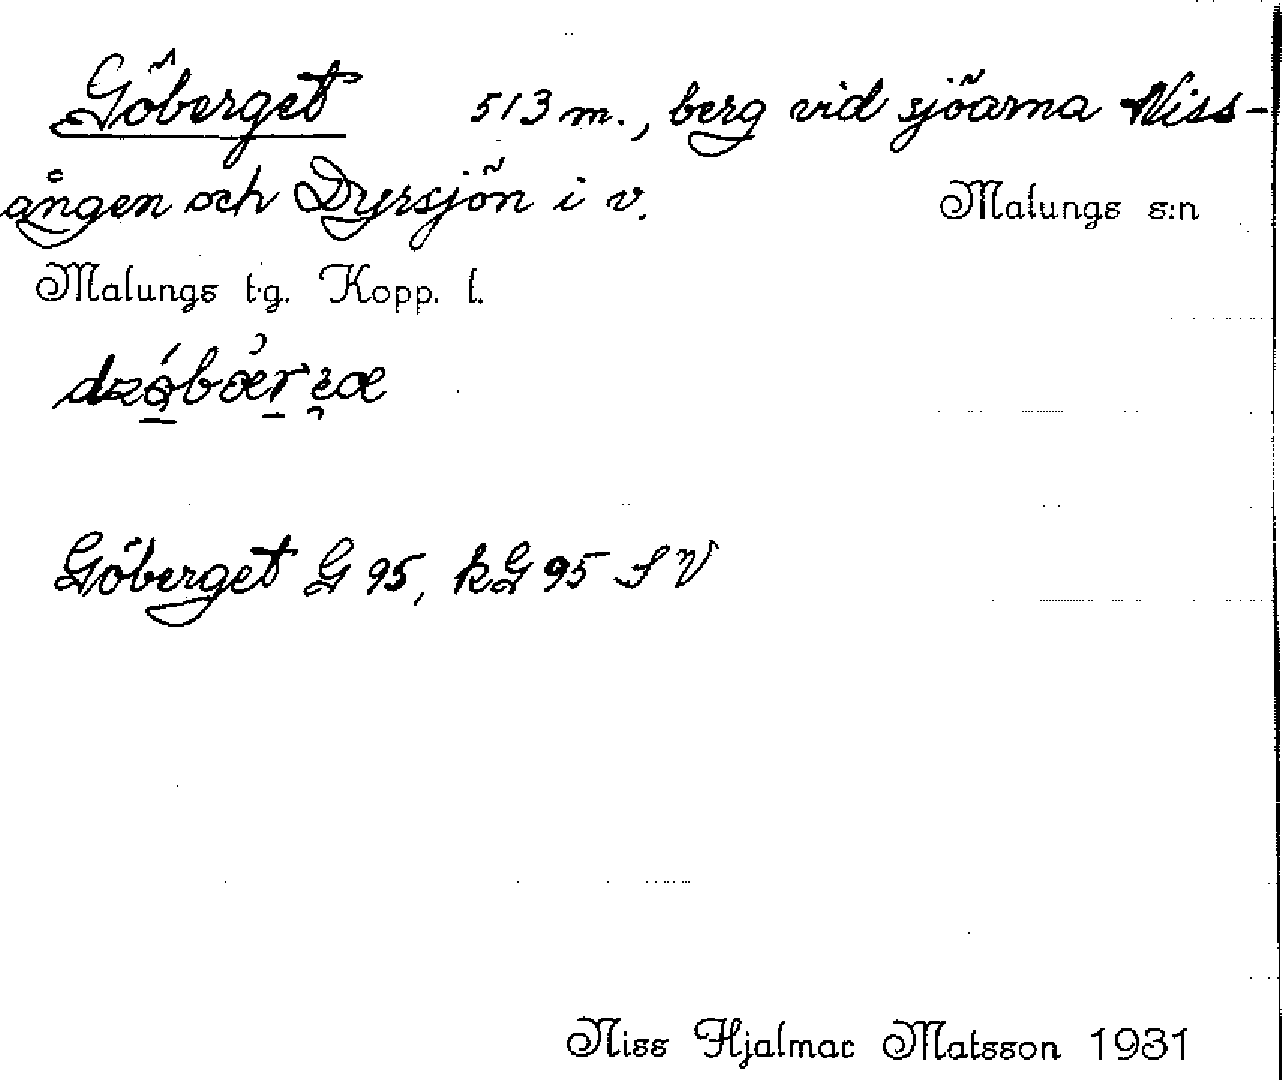 Göberget 513 m., berg vid sjöarna Niss-
ången och Dyrsjön i v. Malungs s:n
Malungs t.g. Kopp. l.
Göberget G 95, kG 95 SV
Niss Hjalmar Matsson 1931